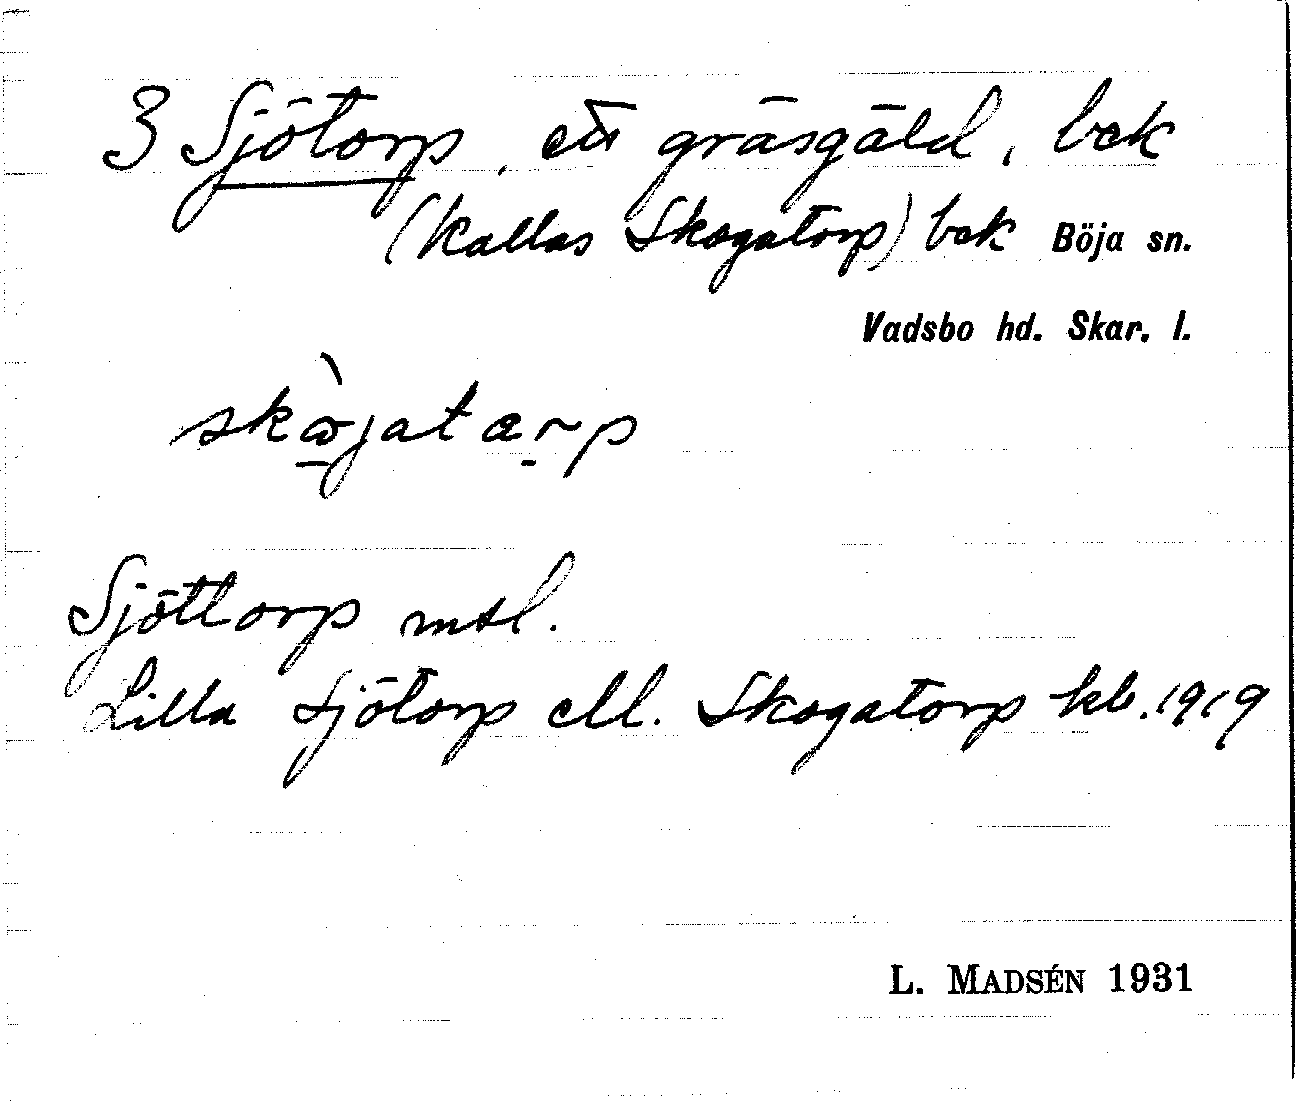 3 Sjötorp, ett gräsgäld, bek
(kallas Skogatorp) bek Böja sn.
Vadsbo hd. Skar. l.
skɷ̀jatarp
Sjöttorp mtl.
Lilla Sjötorp ell. Skogatorp kb. 1919
L. MADSÉN 1931